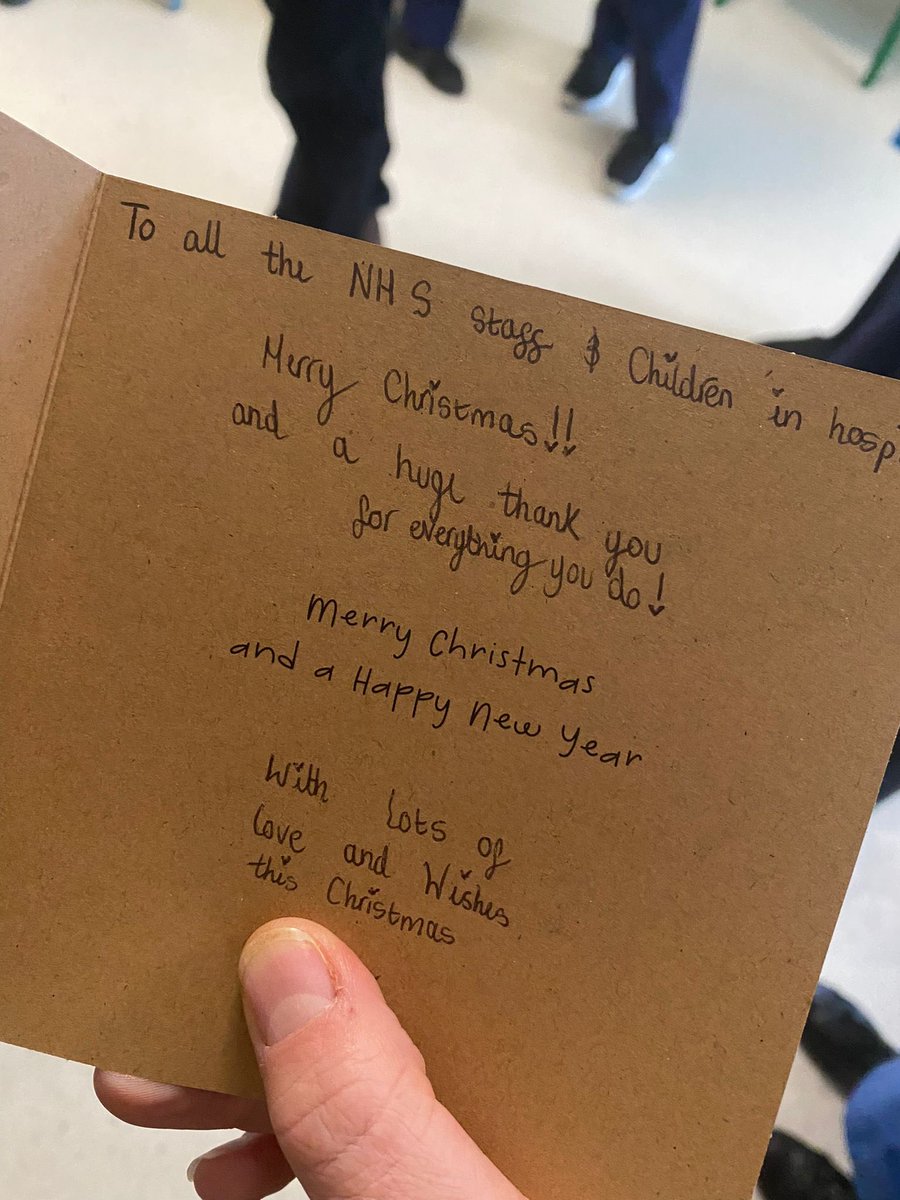 To all the NHS staff & Children in hosp
Merry Christmas!!
and a huge thank you
for everything you do!
Merry Christmas
and a Happy New Year
With lots of
love and Wishes
this Christmas